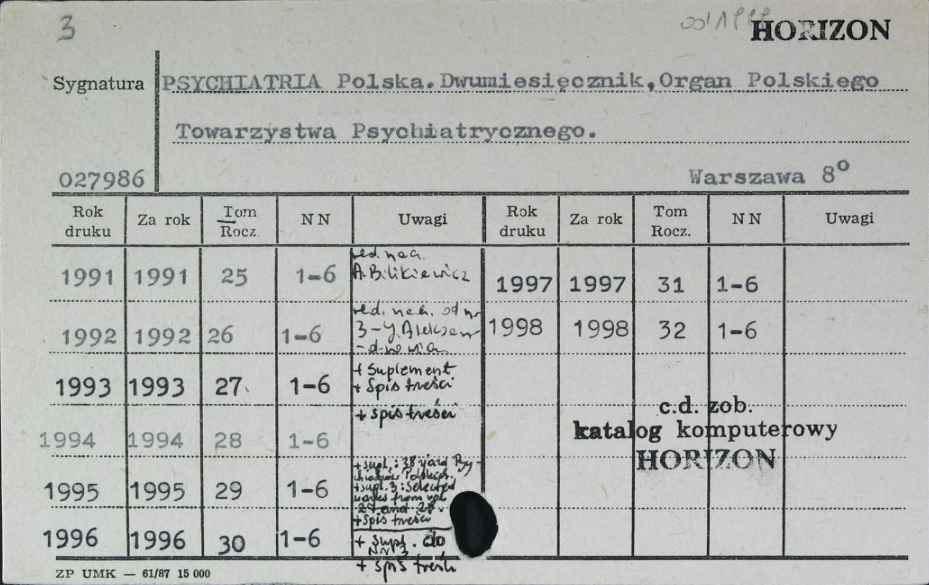 3
HORIZON
Sygnatura PSYCHIATRIA Polska. Dwumiesięcznik, Organ Polskiego
Towarzystwa Psychiatrycznego.
027986 Warszawa 8°
Rok druku Za rok Tom Rocz. NN Uwagi Rok druku Za rok Tom Rocz. NN Uwagi
1991 1991 25 1-6 red. nacz. A. Bilikiewicz 1997 1997 31 1-6
1992 1992 26 1-6 red. nacz. od nr 3-J. Aleksan-drowicz 1998 1998 32 1-6
1993 1993 27. 1-6 + Suplement + Spis treści
+ spis treści
c.d. zob.
katalog komputerowy
HORIZON
1994 1994 28 1-6
1995 1995 29 1-6 + supl.: 38 + supl. 3: Selected works from vol. 27 and 28. + Spis treści
1996 1996 30 1-6 + Supl. do Nr 3
+ spis treści
ZP UMK — 61/87 15 000